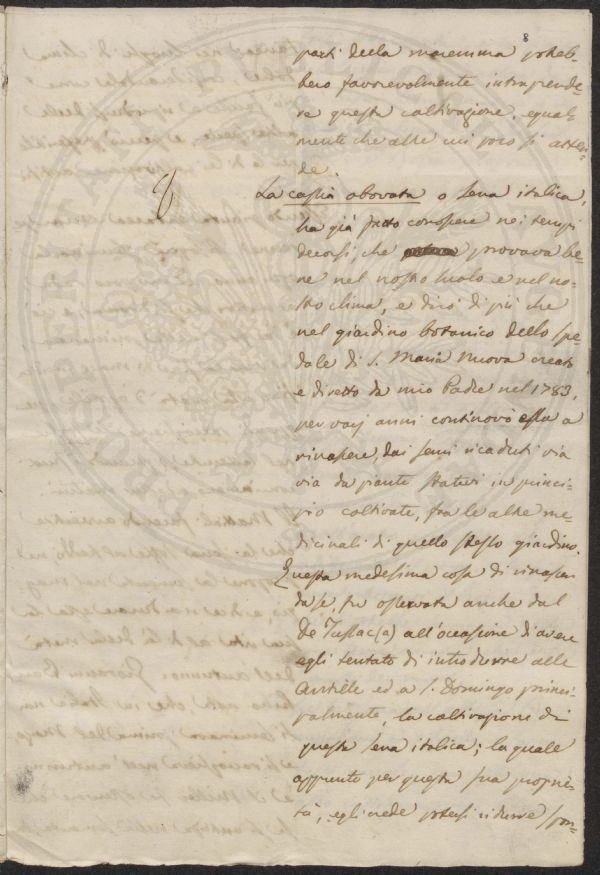 8
parti della maremma potreb-
bero favorevolmente intraprende-
re questa coltivazione, egual-
mente che altre cui poco si atten-
de.
8
La cassia obovata o sena italica,
ha già fatto conoscere nei tempi
decorsi, che provava be-
ne nel nostro suolo e nel no-
stro clima, e dirò di più che
nel giardino botanico dello spe-
dale di S. Maria Nuova creato
e diretto da mio Padre nel 1783,
per varj anni continovò essa a
rinascere, dai semi ricaduti via
via da piante statevi in princi-
pio coltivate, fra le altre me-
dicinali di quello stesso giardino.
Questa medesima cosa di rinascere
da se, fu osservata anche dal
De Tussac (a) all'occasione di avere
egli tentato di introdurre alle
Antille ed a S. Domingo princi-
palmente, la coltivazione di
questa sena italica; la quale
appunto per questa sua proprie-
tà, egli crede potersi ridurre spon-